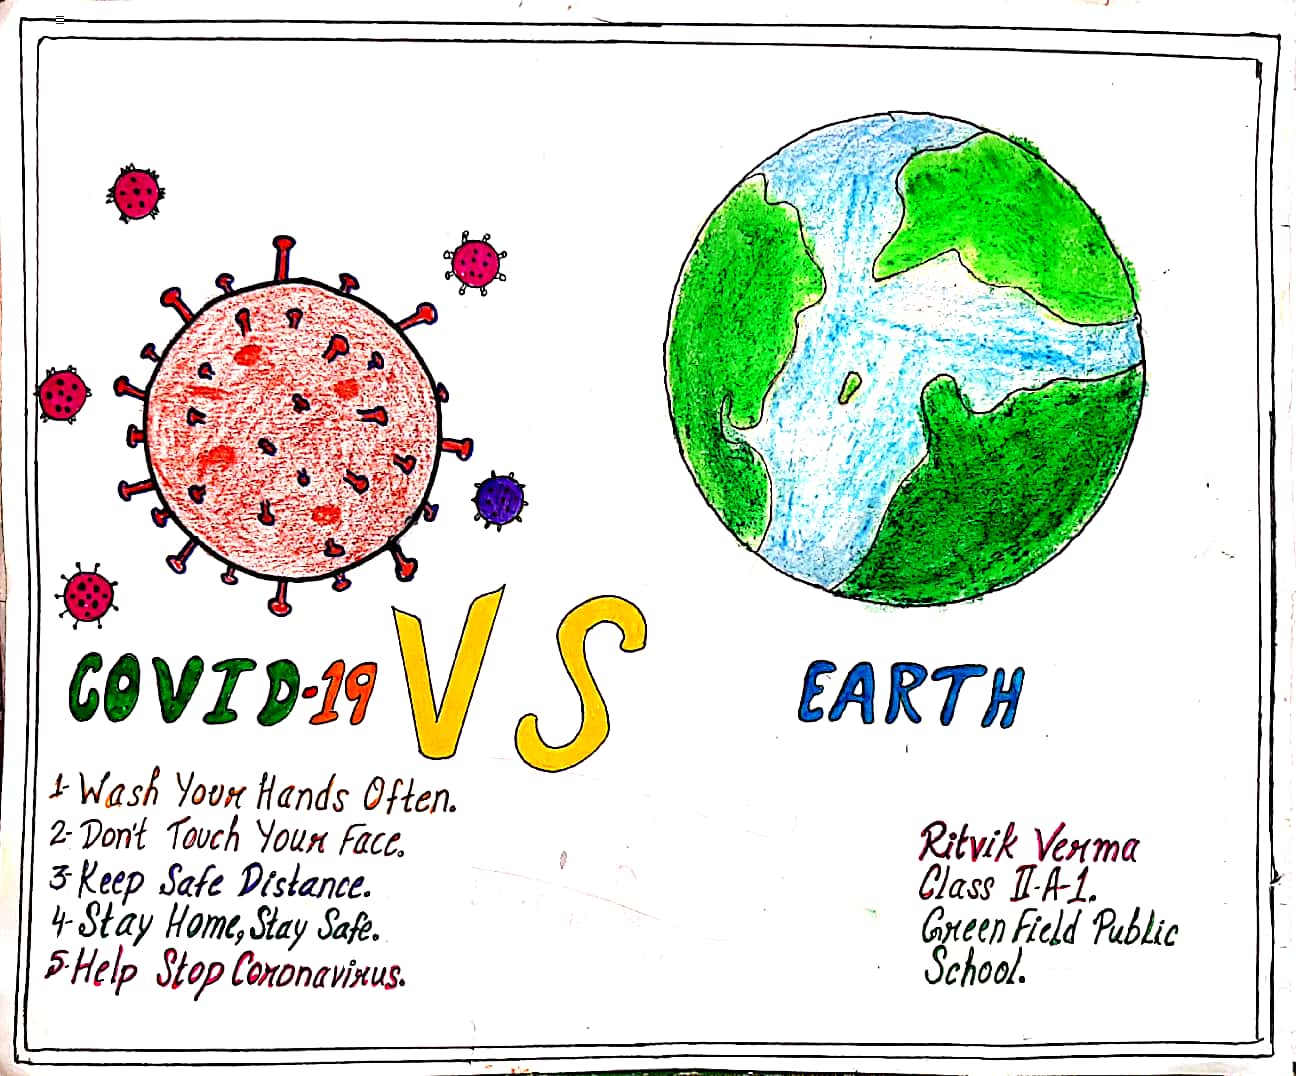 COVID-19 VS EARTH
1- Wash Your Hands Often.
2- Don't Touch Your Face.
3- Keep Safe Distance.
4- Stay Home, Stay Safe.
5- Help Stop Coronavirus.
Ritvik Verma
Class II-A-1.
Green Field Public
School.